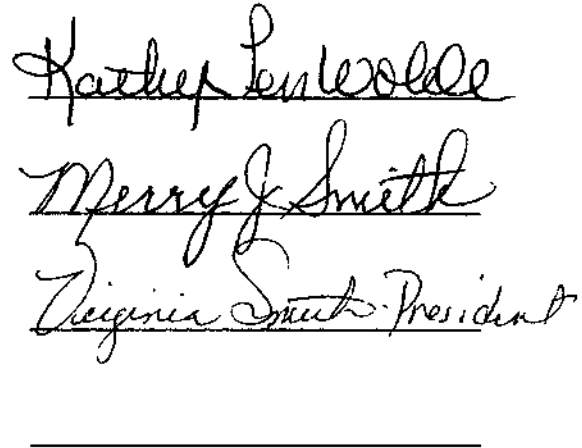 Kathy TenWolde
Merry J Smith
Virginia Smith-President